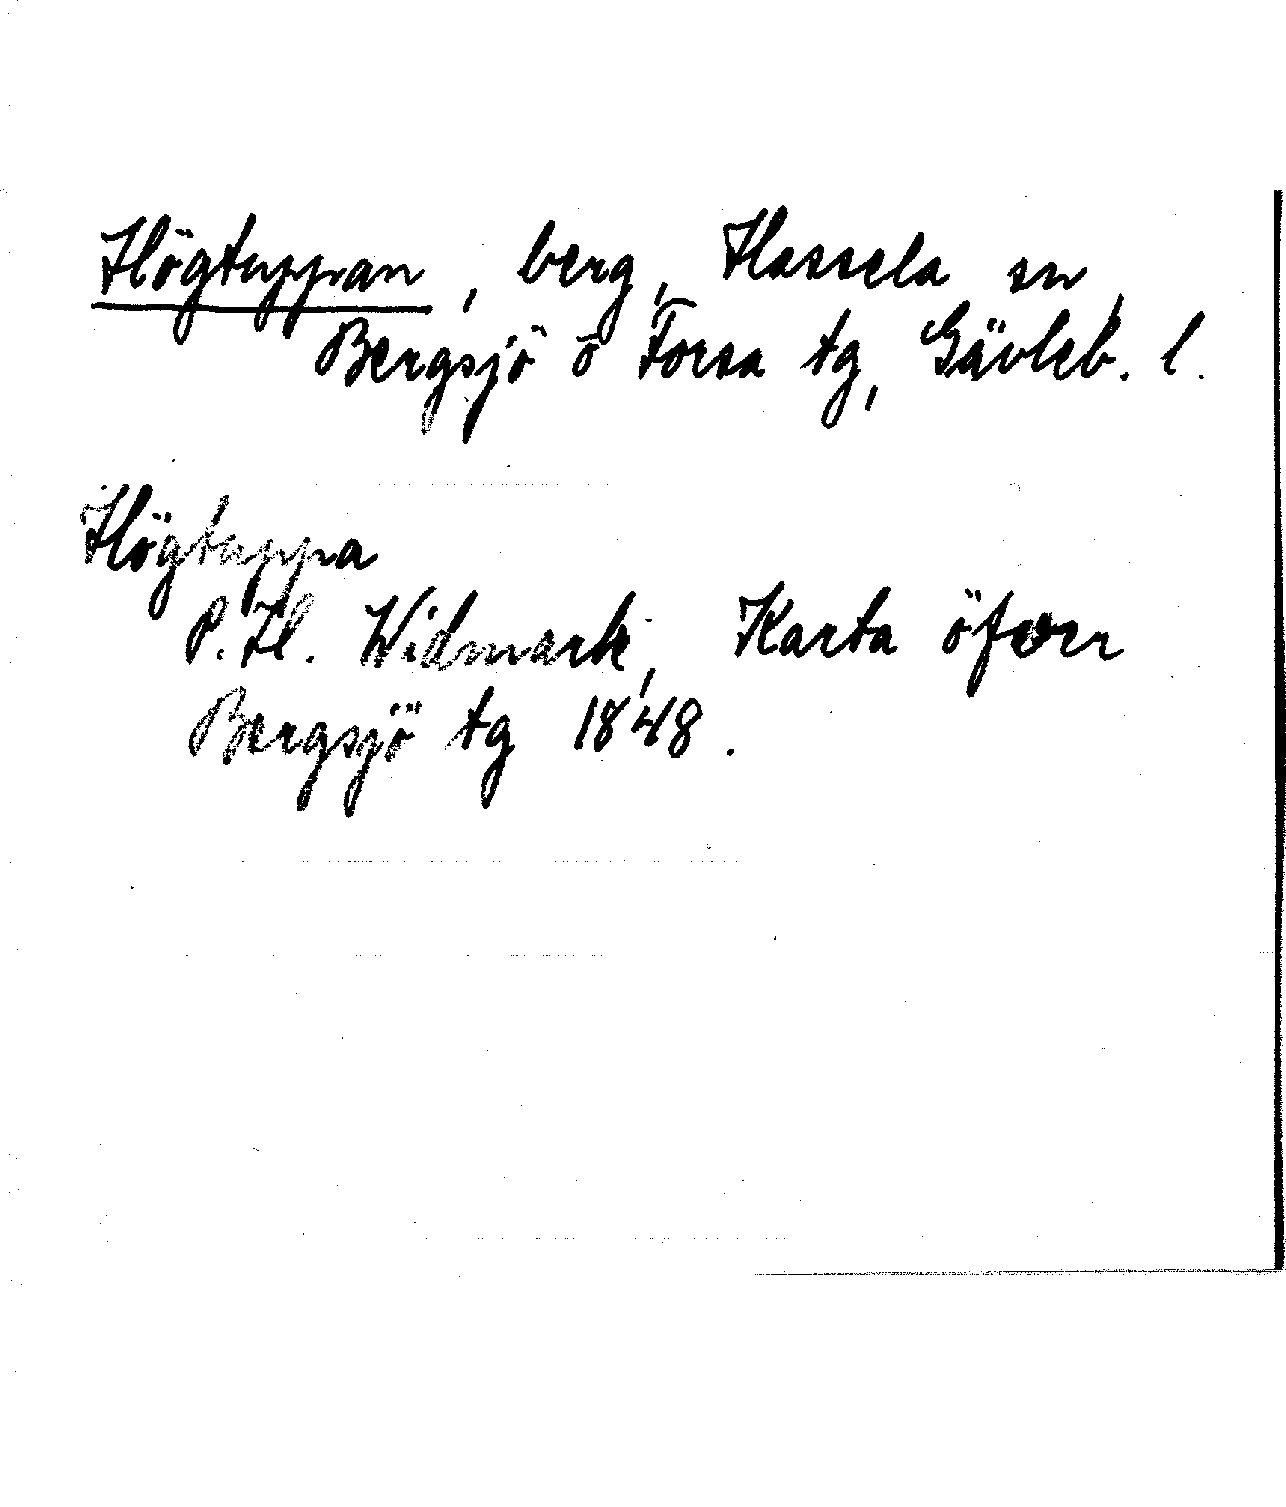 Högtuppan, berg, Hassela sn,
Bergsjö o Forsa tg, Gävleb. l.
Högtuppa
P. H. Widmark, Karta öfver
Bergsjö tg 1848.